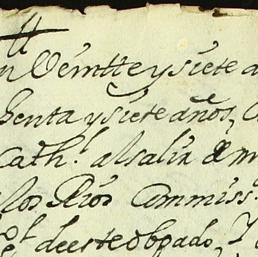 n Veintte y siete a
henta y siete años,
Cath.l al salir de m
los Rios Commiss
deeste obpado, Y